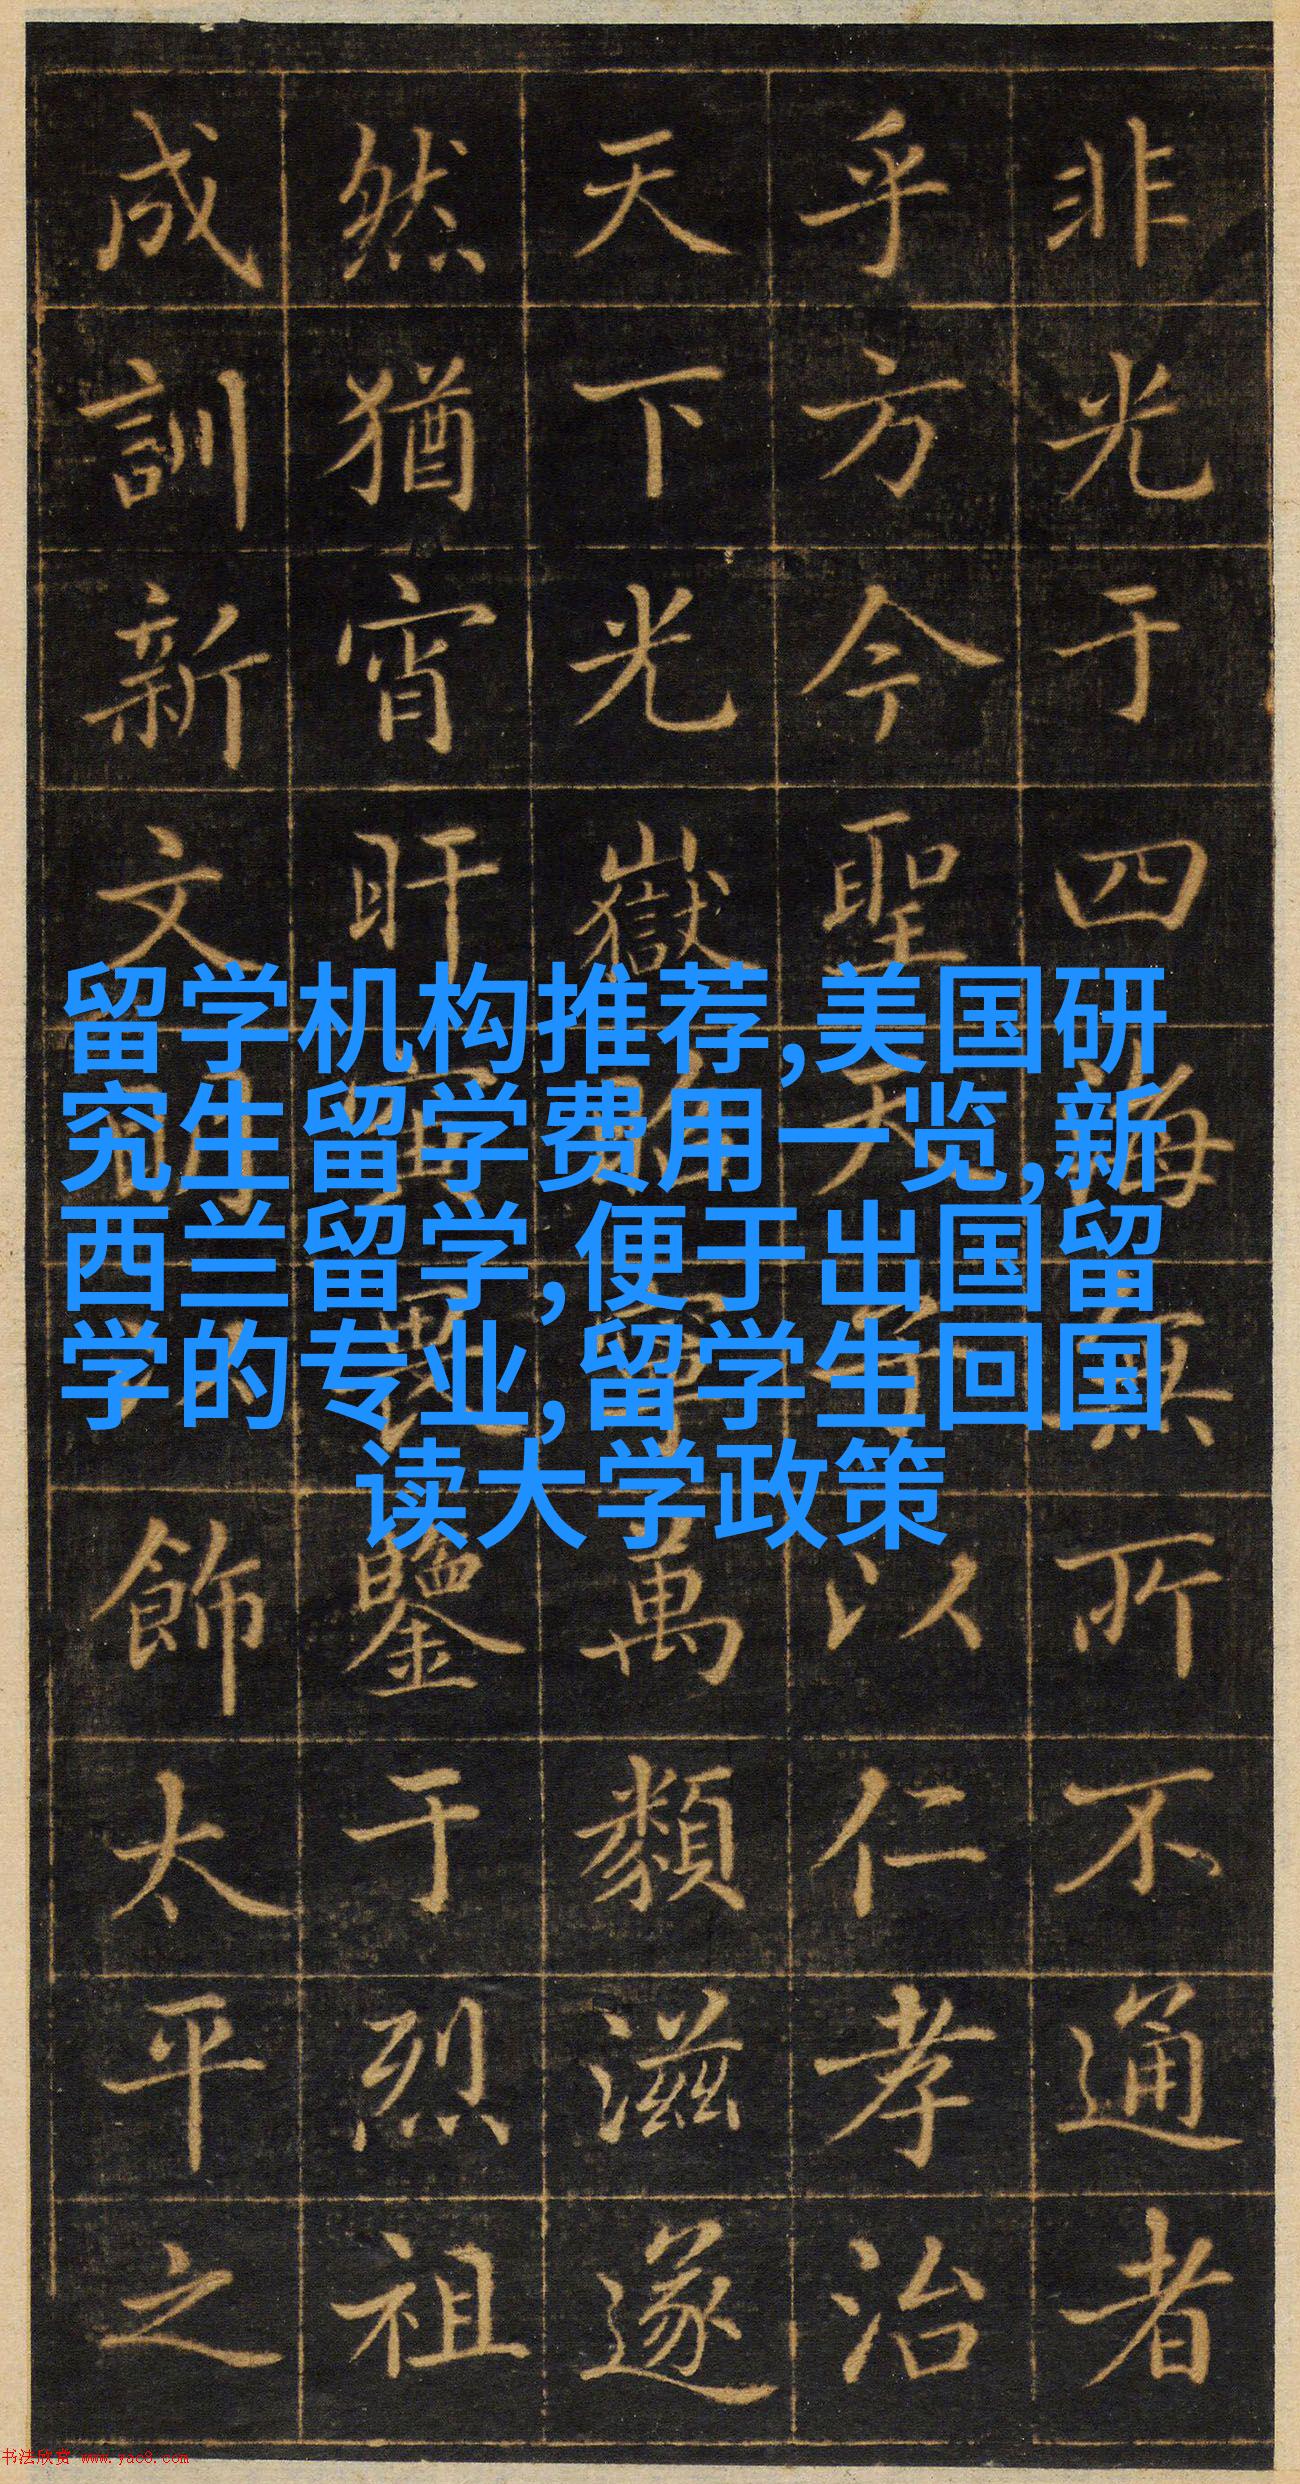 非光于四海無所不通者
乎方今聖天子以仁孝治
天下光嶽寧萬類滋遂
然猶宵旰寅畏鑒于烈祖
成訓新文明以飾太平之
留学机构推荐,美国研
究生留学费用一览,新
西兰留学,便于出国留
学的专业,留学生回国
读大学政策
书法欣赏 www.yac8.com